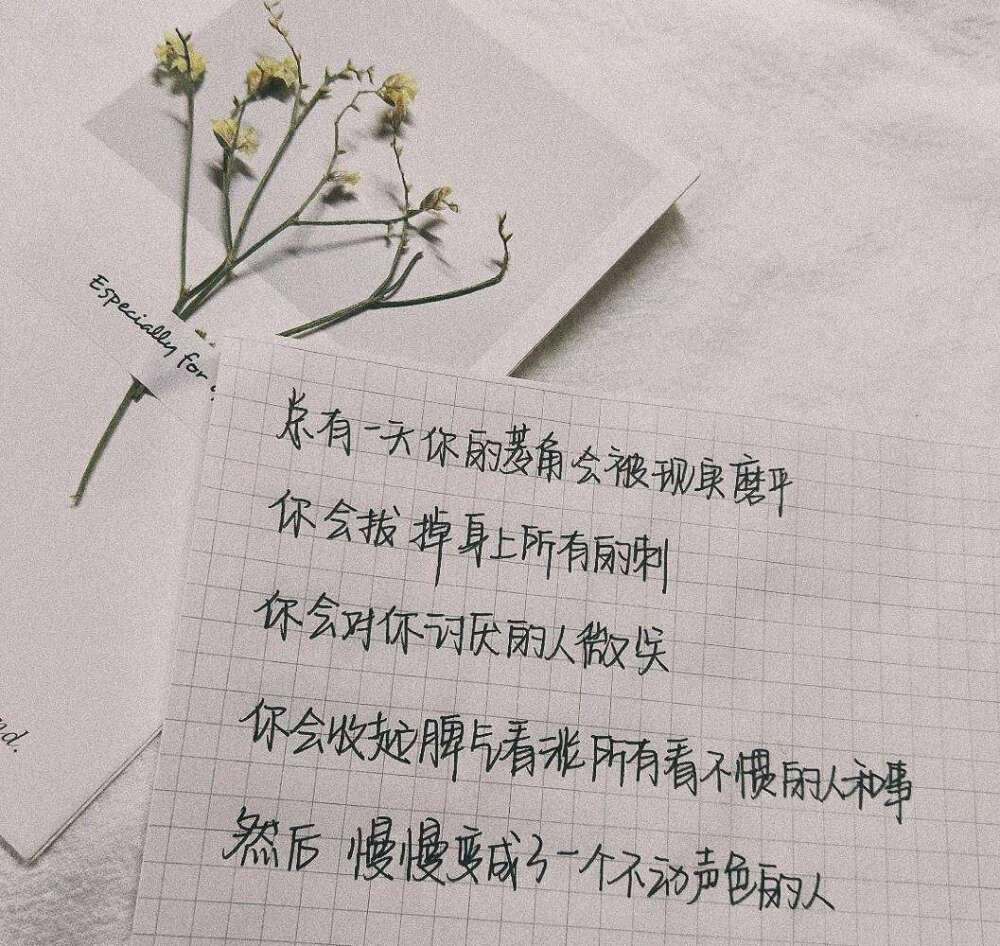 Especially for
总有一天你的菱角会被现实磨平
你会拔掉身上所有的刺
你会对你讨厌的人微笑
你会收起脾气看淡所有看不惯的人和事
然后 慢慢变成了一个不动声色的人